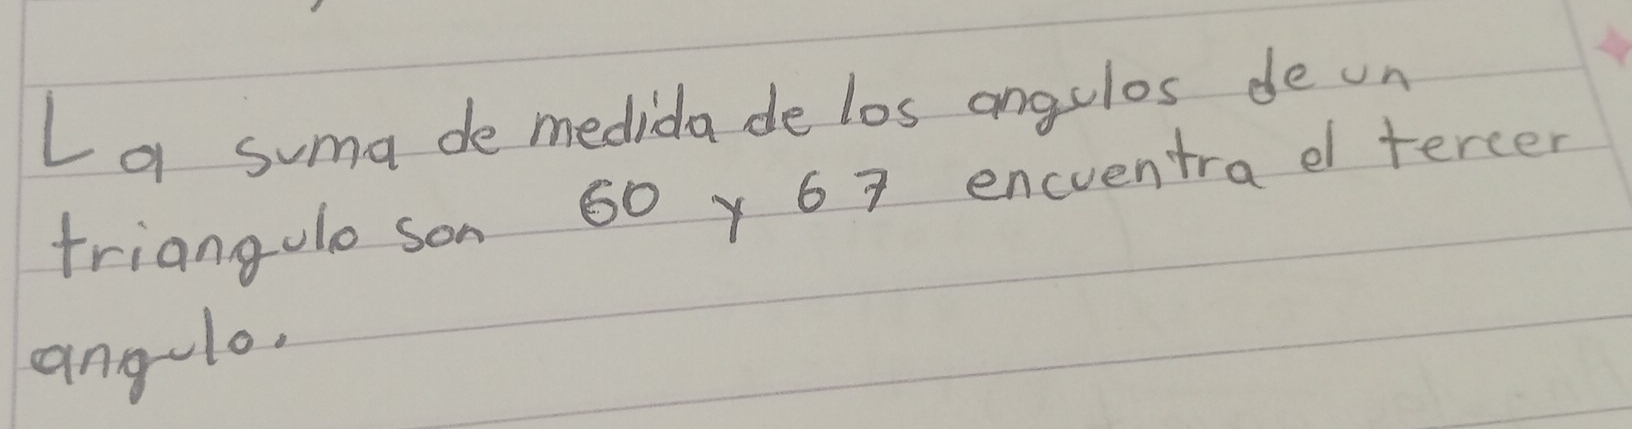 La suma de medida de los angulos de un
triangulo son 60 y 67 encuentra el tercer
angulo.